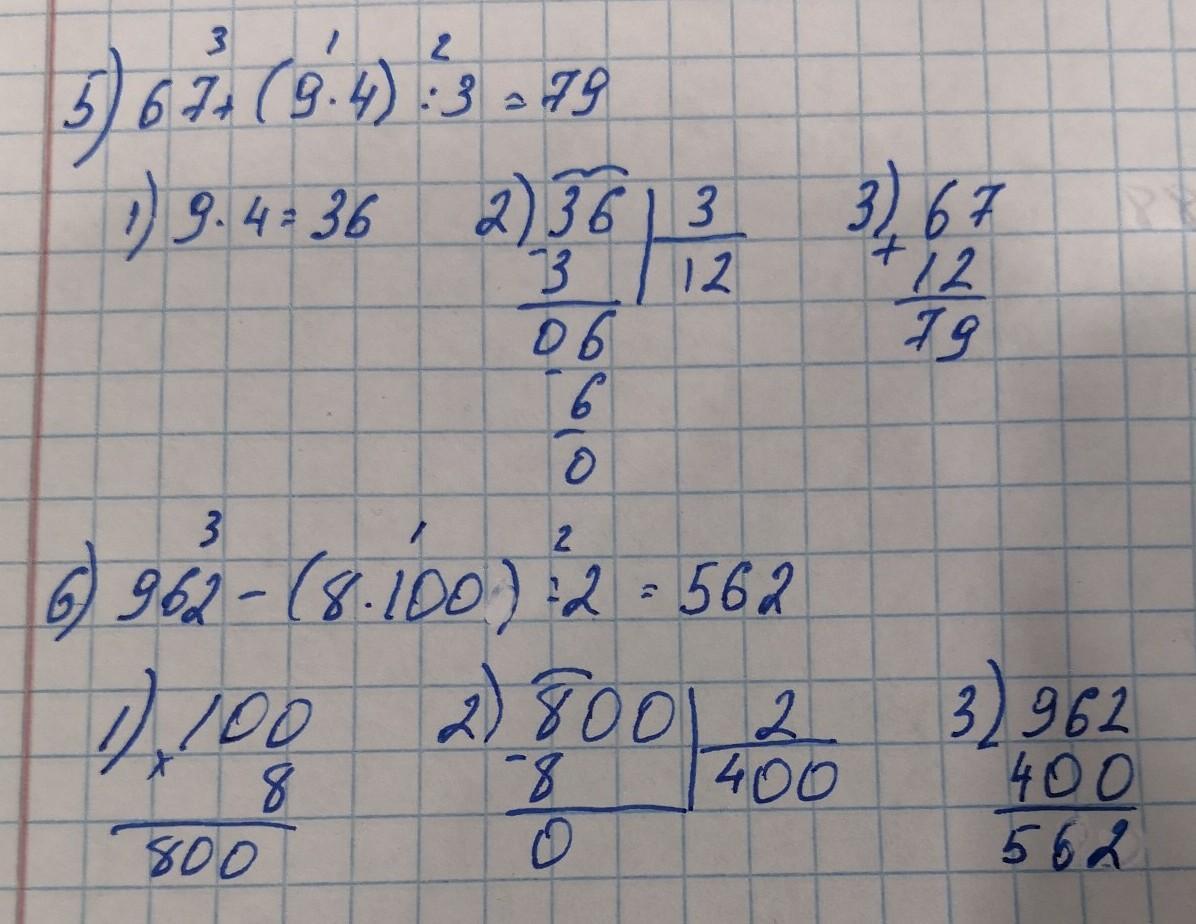 3 1 2
5) 67+ (9·4) :3 = 79
1) 9·4=36 2) 36 | 3 3) 67
-3 | 12 + 12
06 79
- 6
0
3 1 2
6) 962 - (8·100) :2 = 562
1) 100 2) 800 | 2 3) 962
x 8 -8 | 400 400
800 0 562